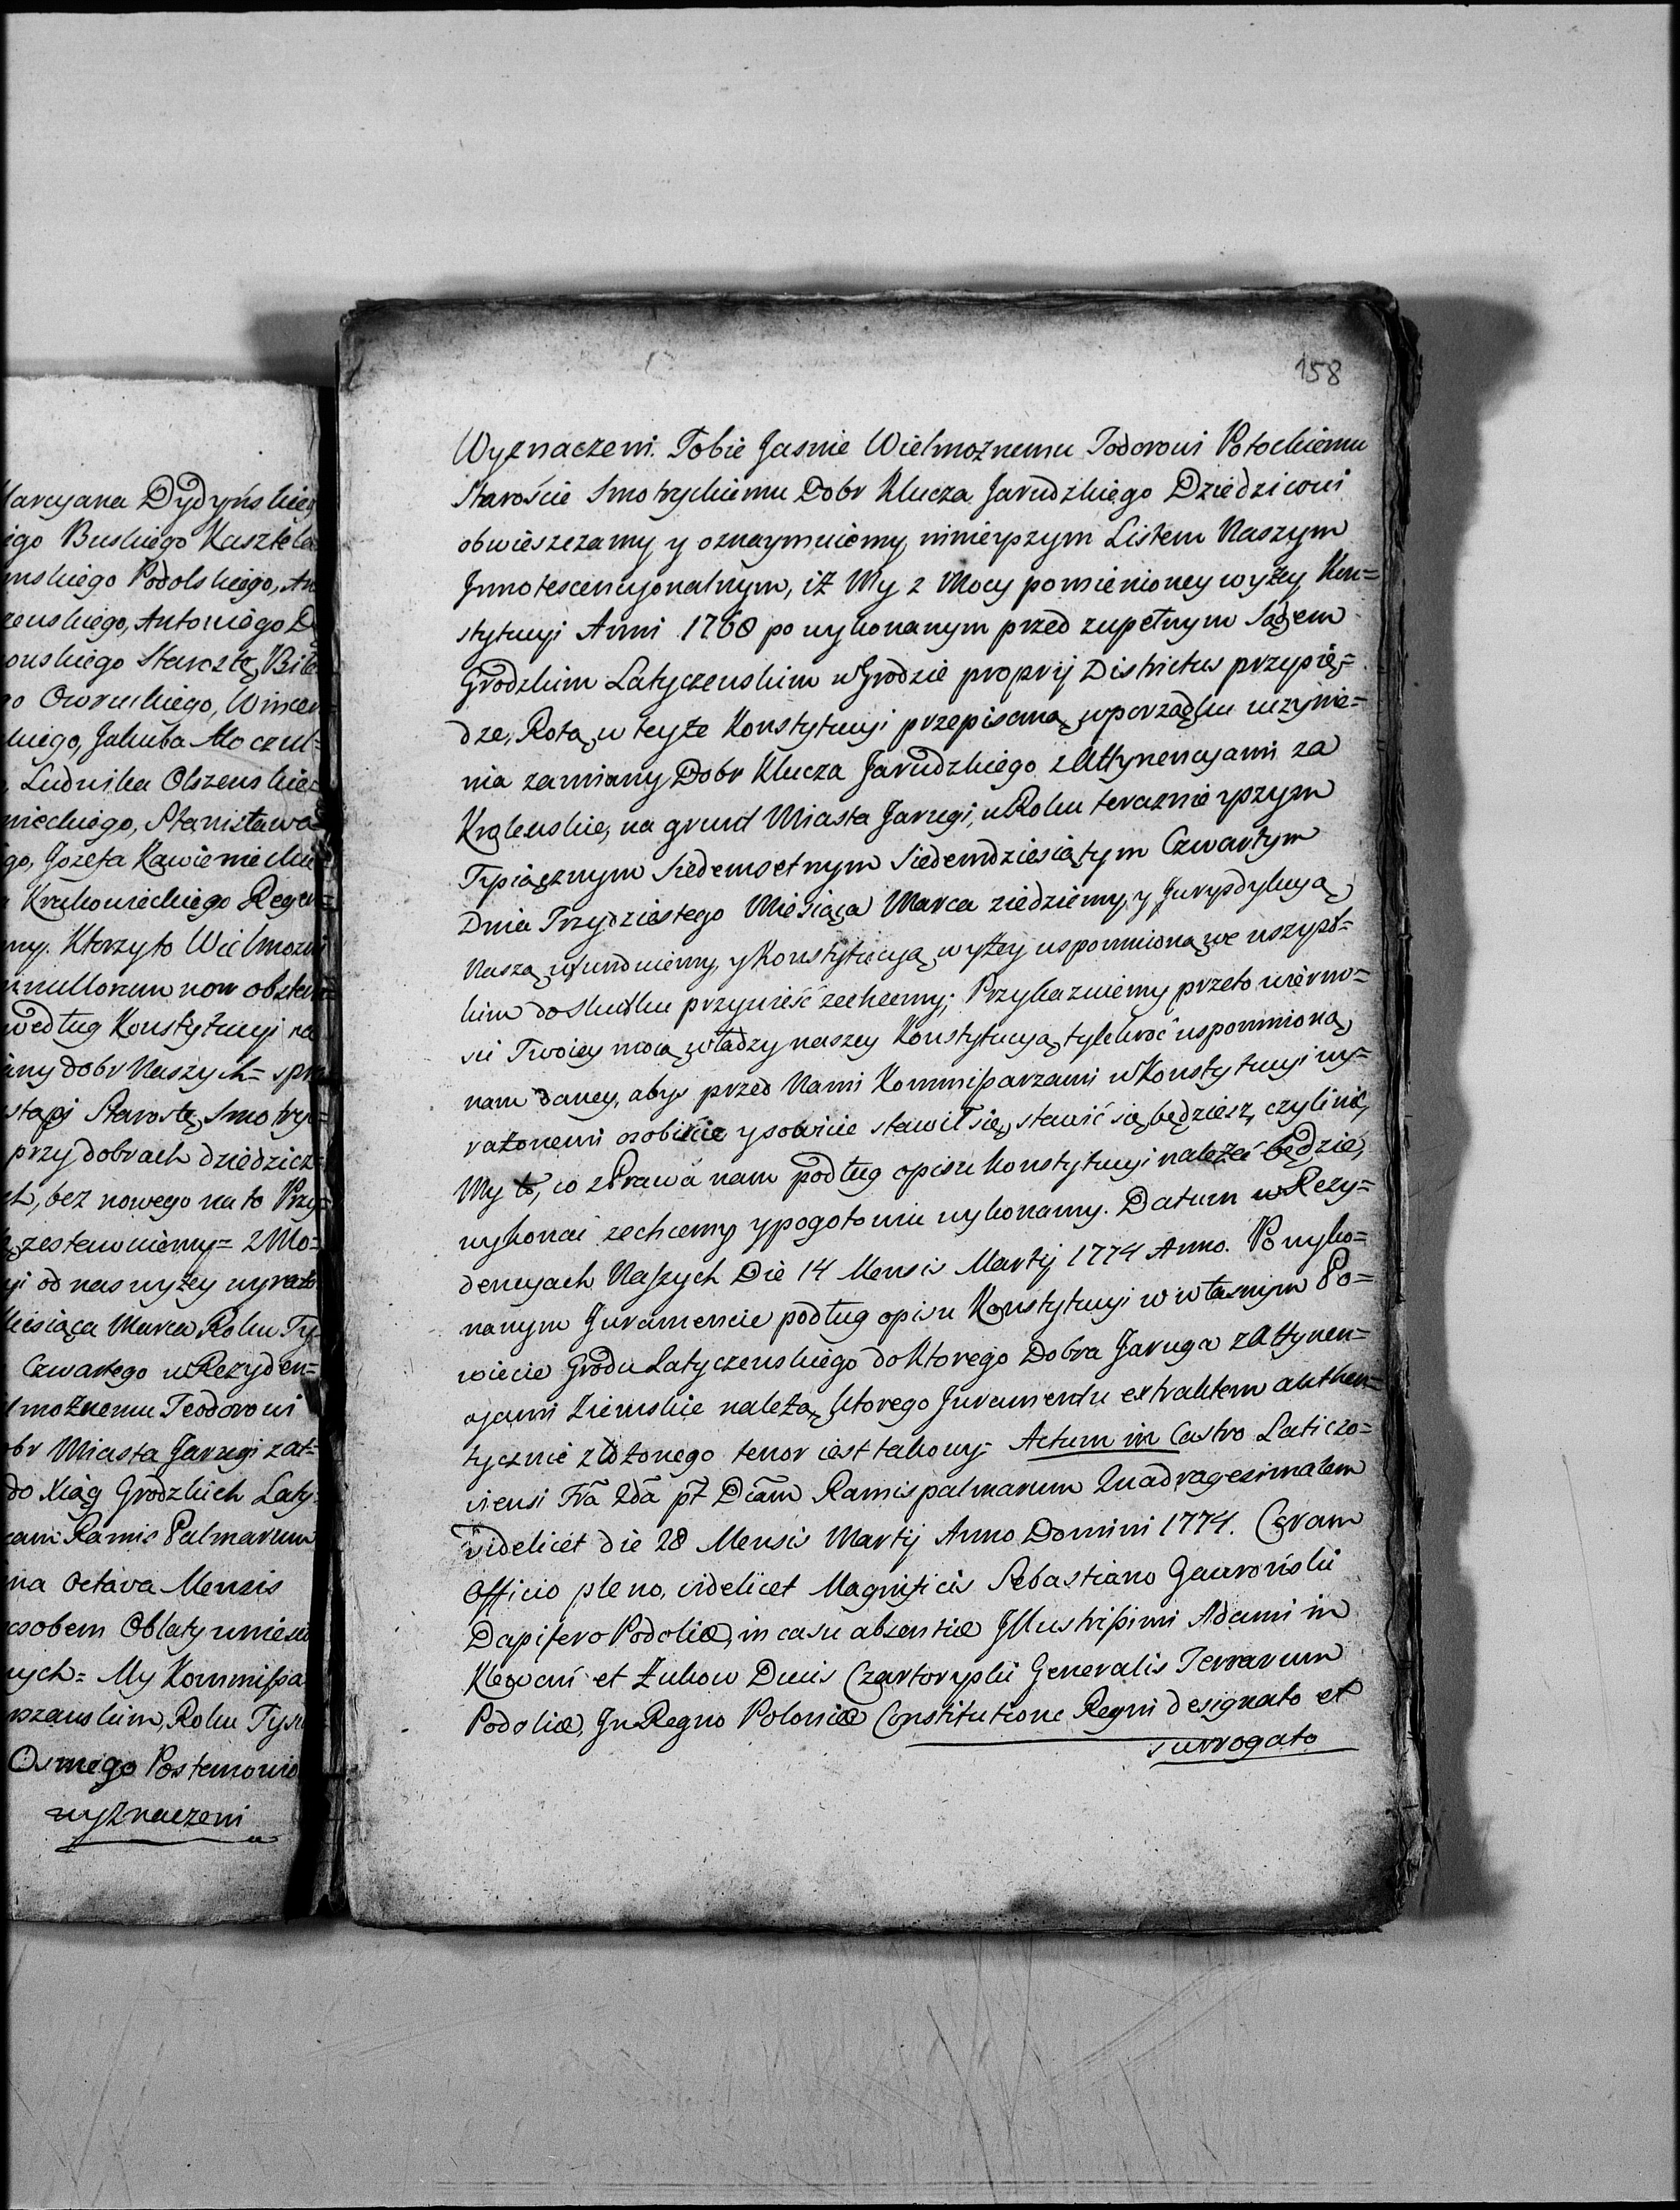 Marcyana Dydyńskieg
iego Buskiego Kasztela
mskiego Podolskiego, An
zenskiego, Antoniego D
onskiego Starostę
go Owruckiego, Wincen=
kiego, Jakuba Moczul=
Ludwika Olszenskie=
mieckiego, Stanisława
go, Jozefa Kawiemeckie
Krzkowieckiego Regen=
my. Ktorzyto Wielmozni
nnullorum non obstan
według Konstytucyi na
any dobr Naszych= spra
stąpi Starostę Smotry=
przy dobrach dziedzicz=
ch, bez nowego na to Przy=
zestanowiemy= z Mo=
yi od nas wyżey wyrażo
Miesiąca Marca Roku Ty
Czwartego w Rezyden=
lmożnemu Teodorowi
obr Miasta Jarugi zat=
do Xiąg Grodzkich Laty=
cam Ramis Palmarum
na Octava Mensis
osobem Oblaty wniesio
nych= My Kommißa
rszauskim, Roku Tysi
Osmego Postanowio
wyznaczeni
158
Wyznaczeni. Tobie Jasnie Wielmożnemu Todorowi Potockiemu
Staroście Smotryckiemu Dobr Klucza Jarudzkiego Dziedzicowi
obwieszczamy y oznaymuiemy, ninieyszym Listem Naszym
Innotescencyonalnym, iż My z Mocy pomienioney wyżey Kon=
stytucyi Anni 1768 po wykonanym przed zupełnym Sądem
Grodzkim Latyczenskim w Grodzie proprij Districtus przysię=
dze, Rotą w teyże Konstytucyi przepisaną, w porządku uczynie=
nia zamiany Dobr Klucza Jarudzkiego z Attynencyami za
Krolewskie, na grunt Miasta Jarugi, w Roku teraznieyszym
Tysiącznym Siedemsetnym Siedemdziesiątym Czwartym
Dnia Trzydziestego Miesiąca Marca ziedziemy, y Jurysdykcyą
Naszą ufunduiemy, y Konstytucyą wyżey wspomnioną we wszyst=
kim do skutku przywieść zechcemy; Przykazuiemy przeto wierno=
sci Twoiey mocą władzy naszey Konstytucyą tylekroć wspomnioną
nam daney, abyś przed Nami Kommißarzami w Konstytucyi wy=
rażonemi osobiście y sowicie stawił się, stawić się będziesz, czyli nie,
My to, co z Prawa nam podług opisu Konstytucyi należeć będzie,
wykonać zechcemy y pogotowiu wykonamy. Datum w Rezy=
dencyach Naszych Die 14 Mensis Martij 1774 Anno. Po wyko=
nanym Juramencie podług opisu Konstytucyi w własnym Po=
wiecie Grodu Latyczenskiego do ktorego Dobra Jaruga z Attynen=
cyami Ziemskie należą, ktorego Juramentu extraktem authen=
tycznie złożonego tenor iest takowy= Actum in Castro Laticzo=
viensi Fra 2da pt Dcam Ramispalmarum Quadragesimalem
videlicet die 28 Mensis Martij Anno Domini 1774. Coram
Officio pleno, videlicet Magnificis Sebastiano Gawroński
Dapifero Podoliæ, in casu absentiæ Jllustrißimi Adami in
Klewań et Żukow Ducis Czartoryski Generalis Terrarum
Podoliæ, Jn Regno Poloniæ Constitutione Regni designato et
surrogato